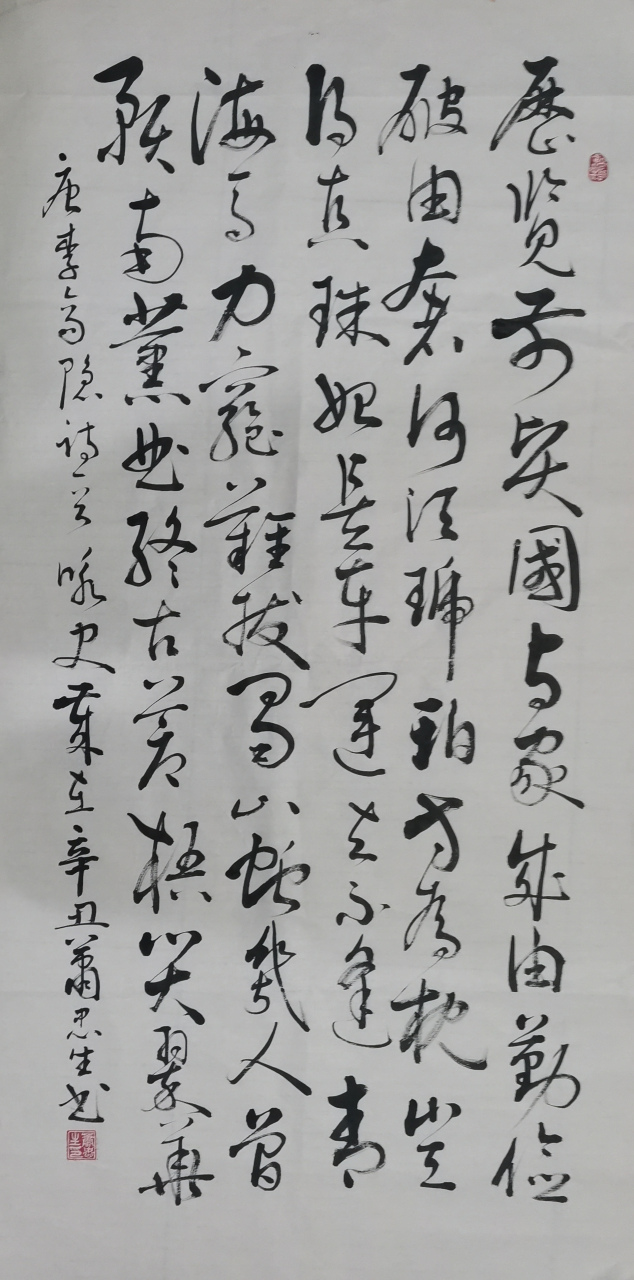 歷览前贤國与家成由勤俭
破由奢何须琥珀方為枕豈
得真珠始是车運去不逢青
海马力窮難拔蜀山蛇幾人曾
預南薰曲终古蒼梧哭翠華
唐李商隐诗一首咏史歲在辛丑蕭忠生书